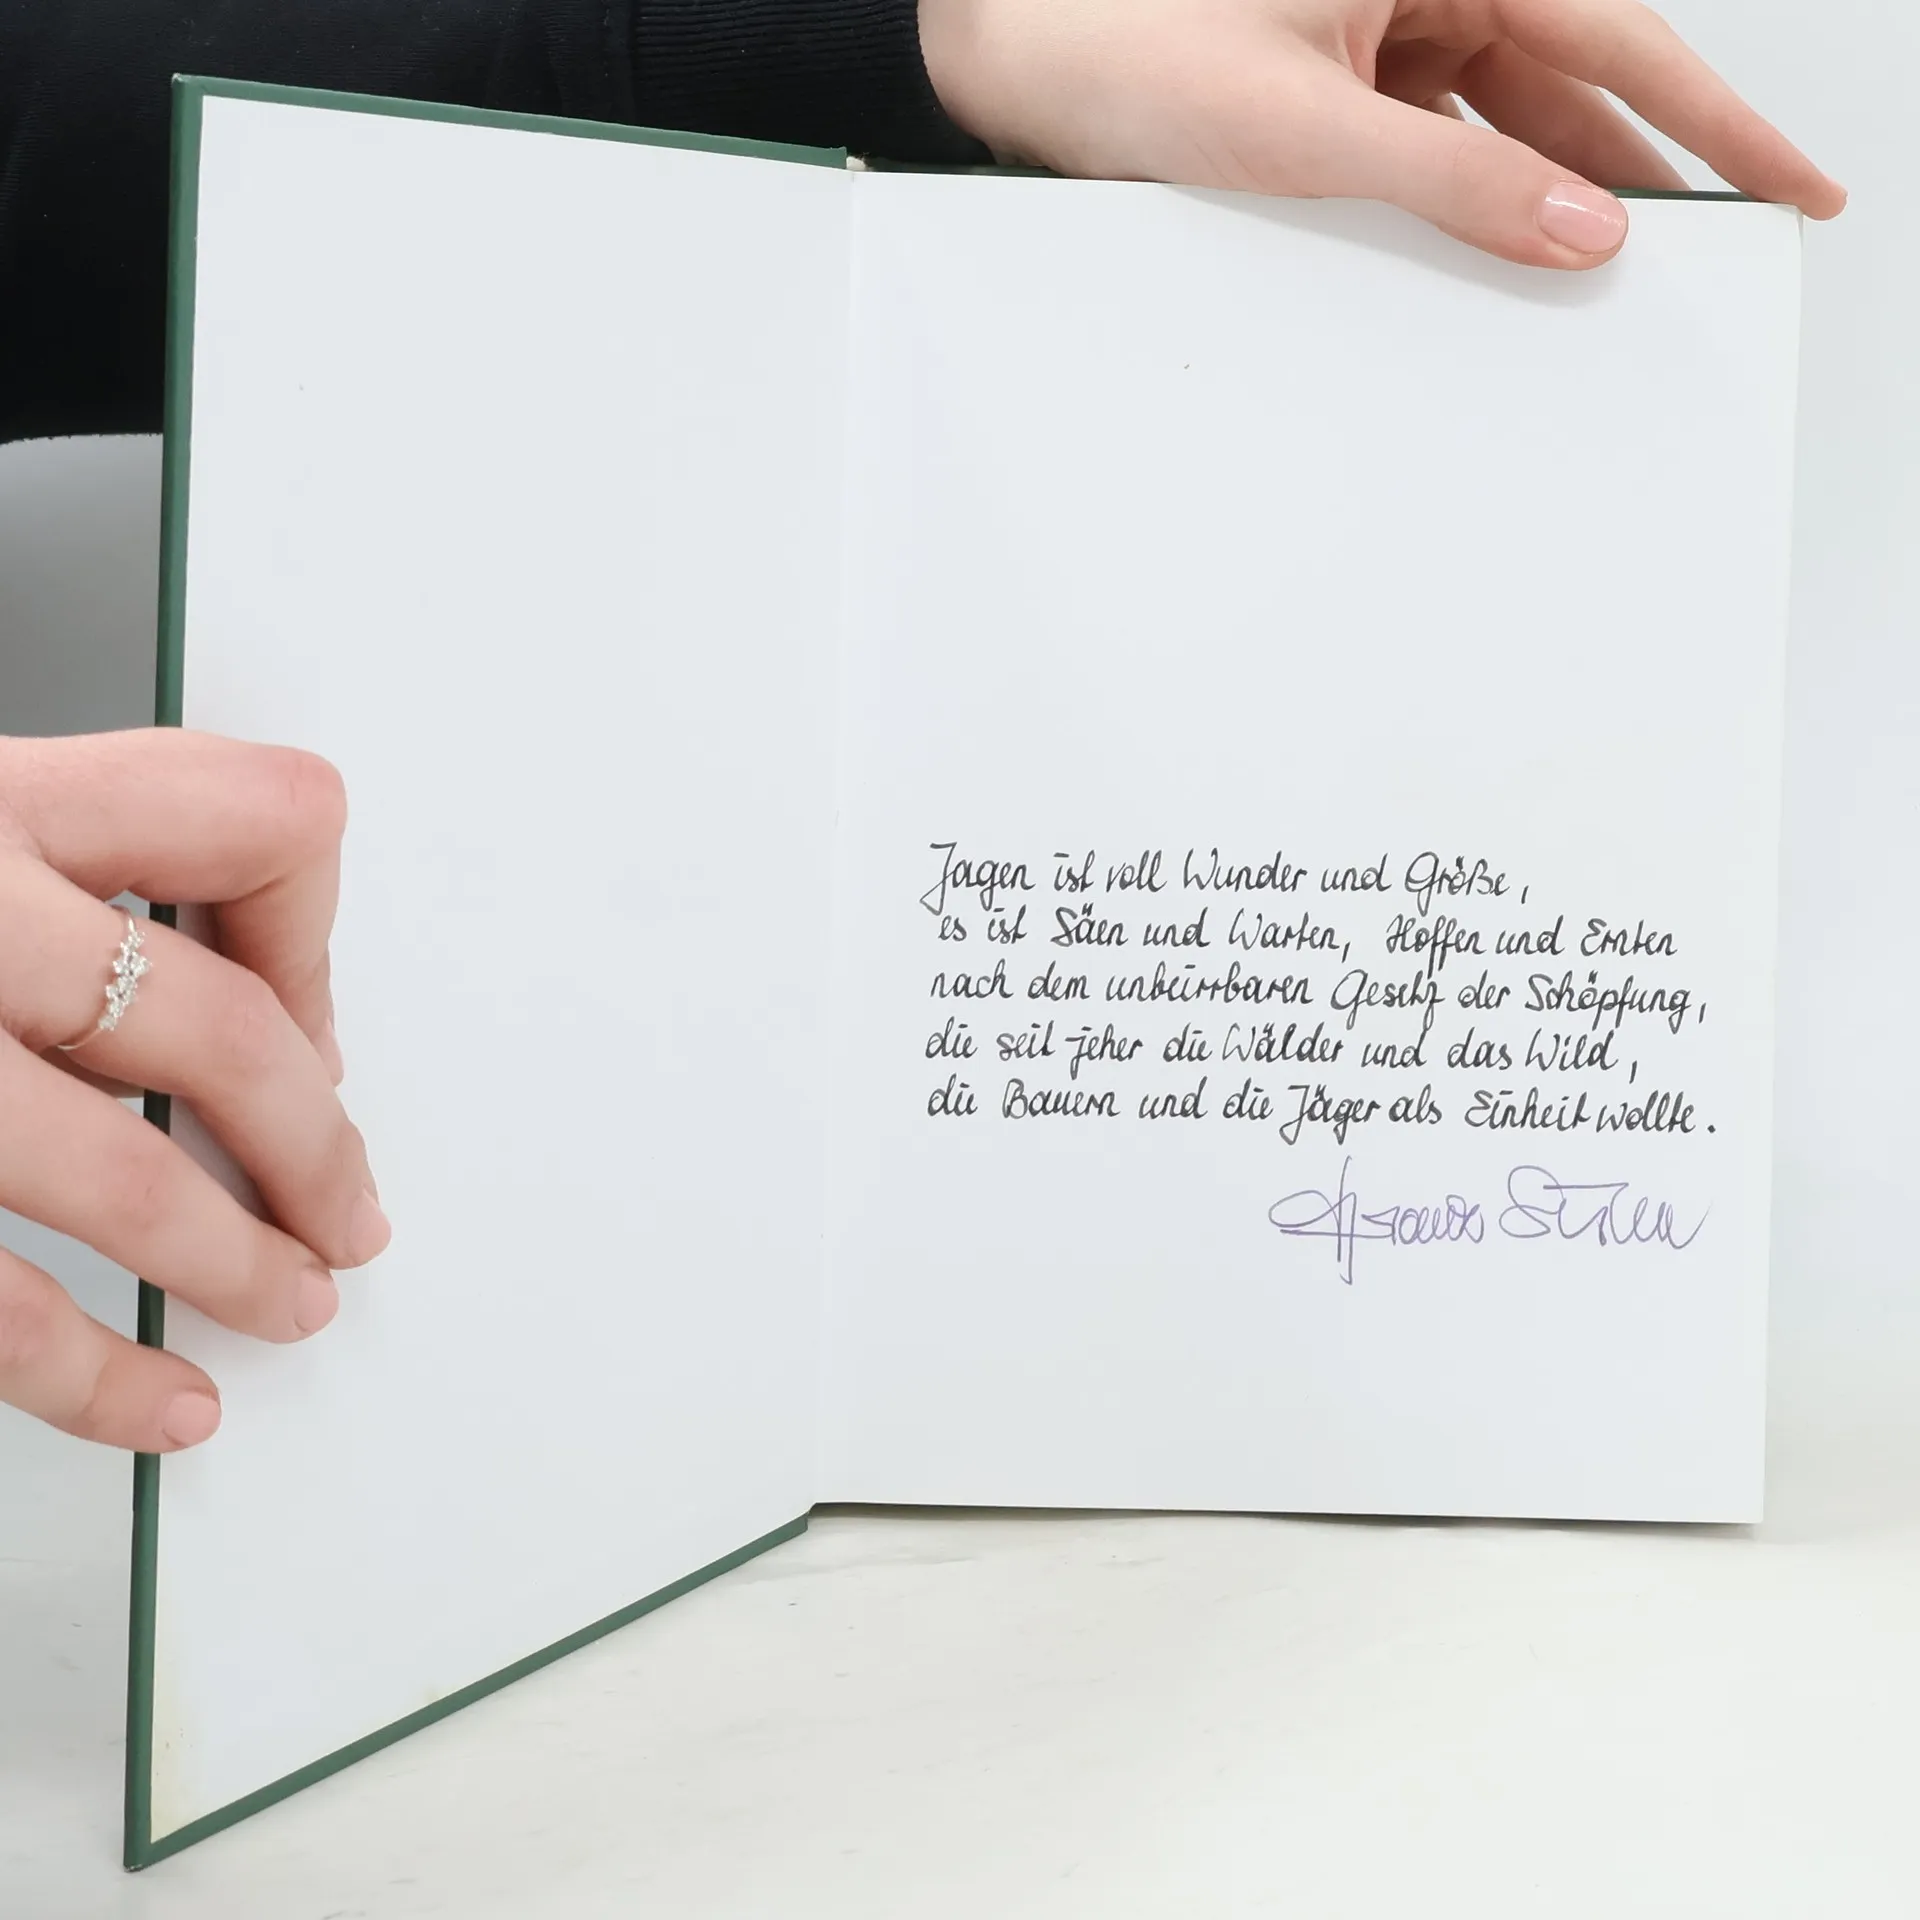 Jagen ist voll Wunder und Größe,
es ist Säen und Warten, Hoffen und Ernten
nach dem unbeirrbaren Gesetz der Schöpfung,
die seit jeher die Wälder und das Wild,
die Bauern und die Jäger als Einheit wollte.